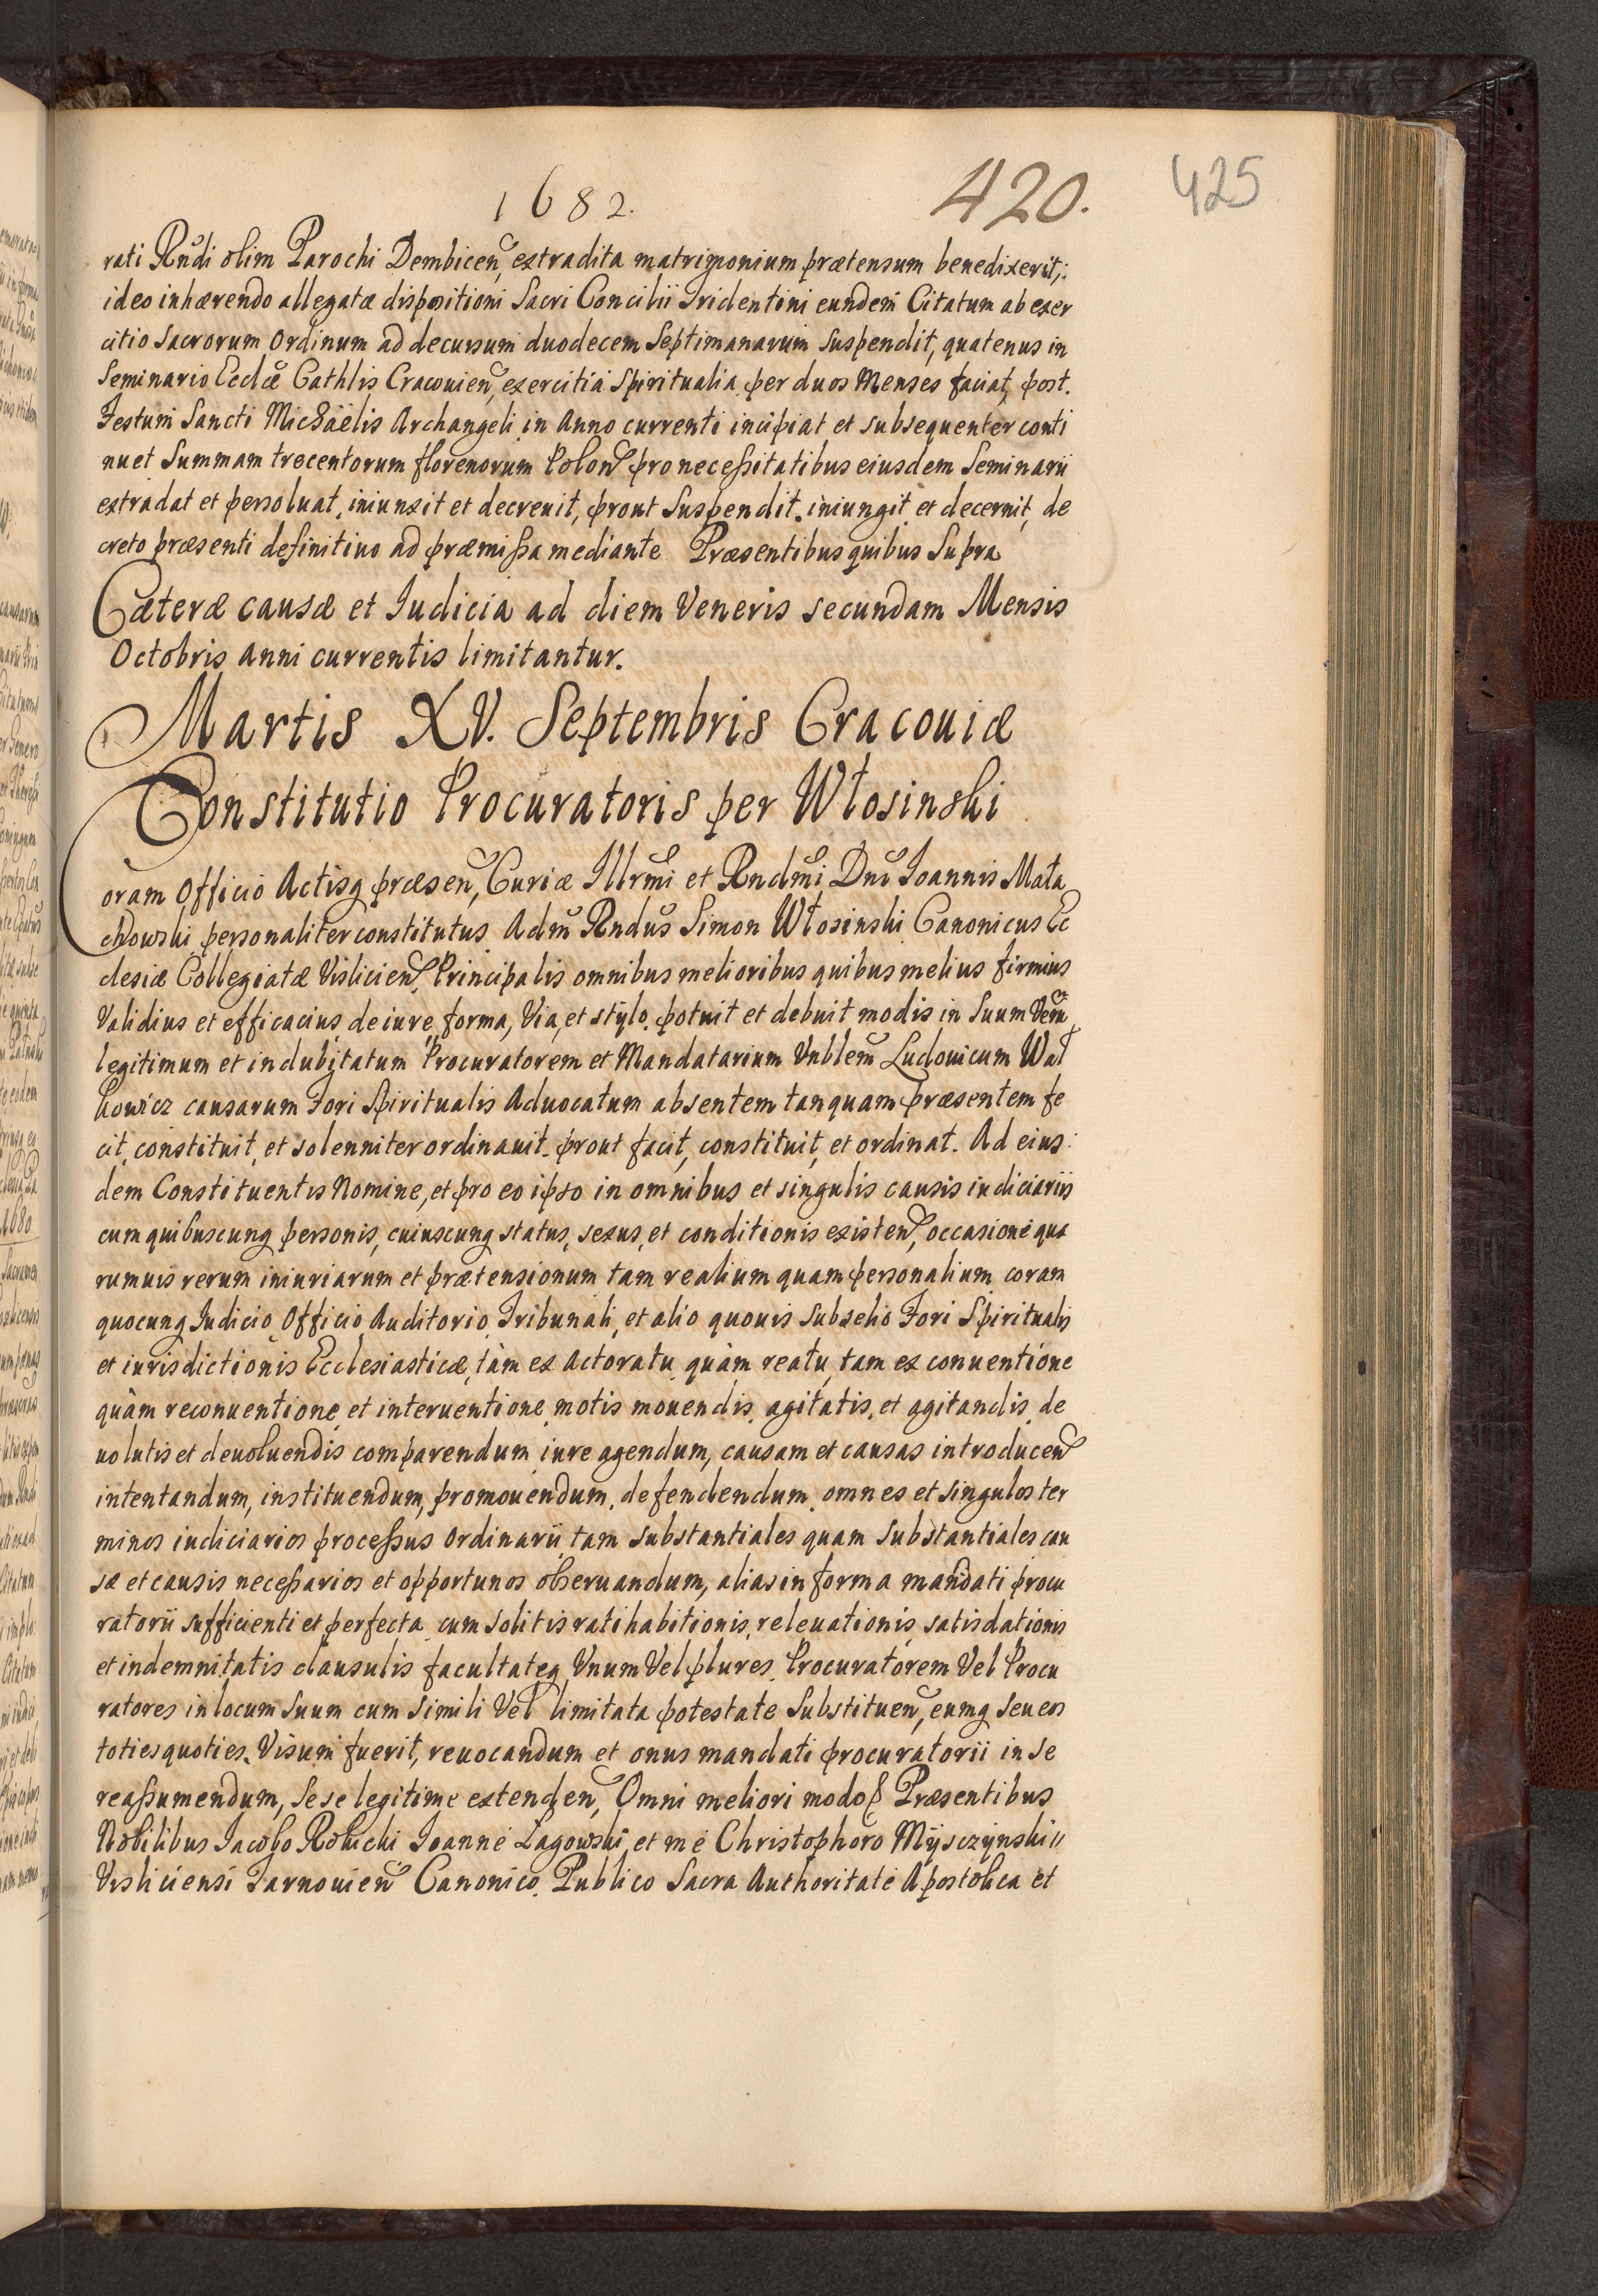 1682.
420.
425
rati Rñdi olim Parochi Dembiceñ, extradita matrimonium prætensum benedixerit;
ideo inhærendo allegatæ dispositioni Sacri Concilii Tridentini eundem Citatum ab exer
citio Sacrorum Ordinum ad decursum duodecem Septimanarum Suspendit, quatenus in
Seminario Eccl̃æ Cathlis Cracouieñ, exercitia Spiritualia per duos Menses faciat, post.
Festum Sancti Michaëlis Archangeli in Anno currenti incipiat et subsequenter conti
nuet Summam trecentorum florenorum Poloñ pro necessitatibus eiusdem Seminarii
extradat et persoluat, iniunxit et decreuit, prout Suspendit, iniungit et decernit, de
creto præsenti definitiuo ad præmissa mediante Præsentibus quibus Supra
Cæteræ causæ et Iudicia ad diem Veneris secundam Mensis
Octobris anni currentis limitantur.
Martis XV. Septembris Cracouiæ
Constitutio Procuratoris per Włosinski
Coram Officio Actisq præseñ, Curiæ Illrm̃i et Rndm̃i Dnĩ Ioannis Mała
chowski personaliter constitutus Adm̃ Rndũs Simon Włosinski Canonicus Ec
clesiæ Collegiatæ Vislicieñ Principalis omnibus melioribus quibus melius firmius
Validius et efficacius de iure, forma, Via, et stylo potuit et debuit modis in Suum Verũ
legitimum et indubitatum Procuratorem et Mandatarium Vnblem̃ Ludouicum Wał
kowicz causarum Fori Spiritualis Aduocatum absentem tanquam præsentem fe
cit, constituit, et solenniter ordinauit prout facit, constituit, et ordinat. Ad eius
dem Constituentis Nomine, et pro eo ipso in omnibus et singulis causis iudiciariis
cum quibuscunq personis, cuiuscunq status, sexus, et conditionis existeñ, occasione qua
rumuis rerum iniuriarum et prætensionum tam realium quam personalium coram
quocunq Iudicio Officio Auditorio, Tribunali, et alio quouis Subselio Fori Spiritualis
et iurisdictionis Ecclesiasticæ, tàm ex Actoratu quàm reatu, tam ex conuentione
quàm reconuentione et interuentione motis mouendis, agitatis, et agitandis, de
uolutis et deuoluendis comparendum iure agendum, causam et causas introduceñ
intentandum, instituendum, promouendum, defendendum, omnes et Singulos ter
minos iudiciarios processus Ordinarii, tam substantiales quam Substantiales cau
sæ et causis necessarios et opportunos obseruandum, alias in forma mandati procu
ratorii sufficienti et perfecta cum Solitis ratihabitionis, releuationis, satisdationis
et indemnitatis clausulis facultateq Vnum Vel plures Procuratorem Vel Procu
ratores in locum Suum cum simili Vel limitata potestate Substitueñ, eumq seu eos
toties quoties Visum fuerit, reuocandum et onus mandati procuratorii in se
reassumendum, Sese legitime extendeñ, Omni meliori modo Præsentibus
Nobilibus Iacobo Robicki Ioanne Łagowski et me Christophoro Mÿsczÿnski
Visliciensi Tarnouieñ Canonico, Publico Sacra Authoritate Apostolica et